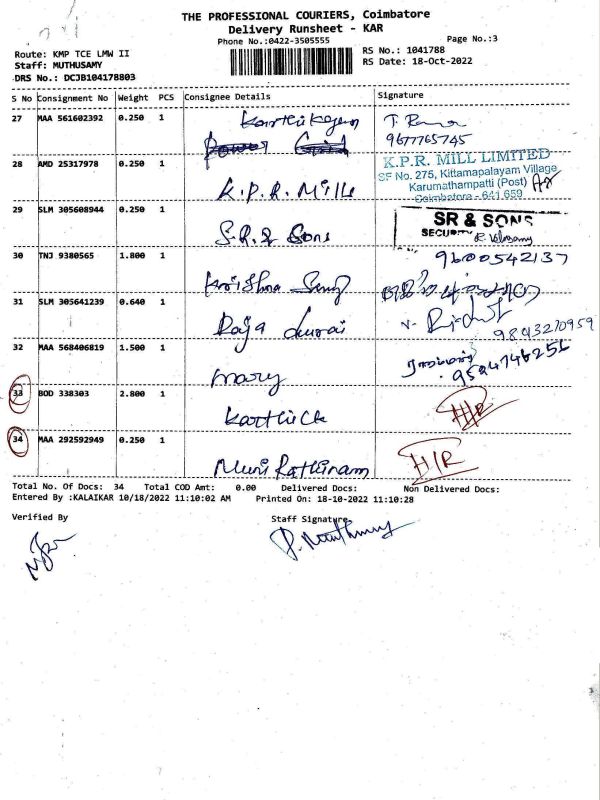 THE PROFESSIONAL COURIERS, Coimbatore
Delivery Runsheet - KAR
Phone No.:0422-3505555
Page No.:3
Route: KMP TCE LMW II
RS No.: 1041788
Staff: MUTHUSAMY
RS Date: 18-Oct-2022
DRS No.: DCJB104178803
S No Consignment No Weight PCS Consignee Details Signature
27 MAA 561602392 0.250 1 Karthikeyan
9677765745
28 AMD 25317978 0.250 1 K.P.R. Mills
K.P.R. MILL LIMITED
SF No. 275, Kittamapalayam Village,
Karumathampatti (Post)
Coimbatore - 641 659
29 SLM 305608944 0.250 1 S.R.& Sons
SR & SONS
SECURITY
30 TNJ 9380565 1.800 1 Krishna
9600542137
31 SLM 305641239 0.640 1 Raja durai
9843270959
32 MAA 568406819 1.500 1 mary
33 BOD 338303 2.800 1 Karthick
34 MAA 292592949 0.250 1 Muni Rathinam H/R
Total No. Of Docs: 34 Total COD Amt: 0.00 Delivered Docs: Non Delivered Docs:
Entered By :KALAIKAR 10/18/2022 11:10:02 AM Printed On: 18-10-2022 11:10:28
Verified By
Staff Signature
P. Muthusamy